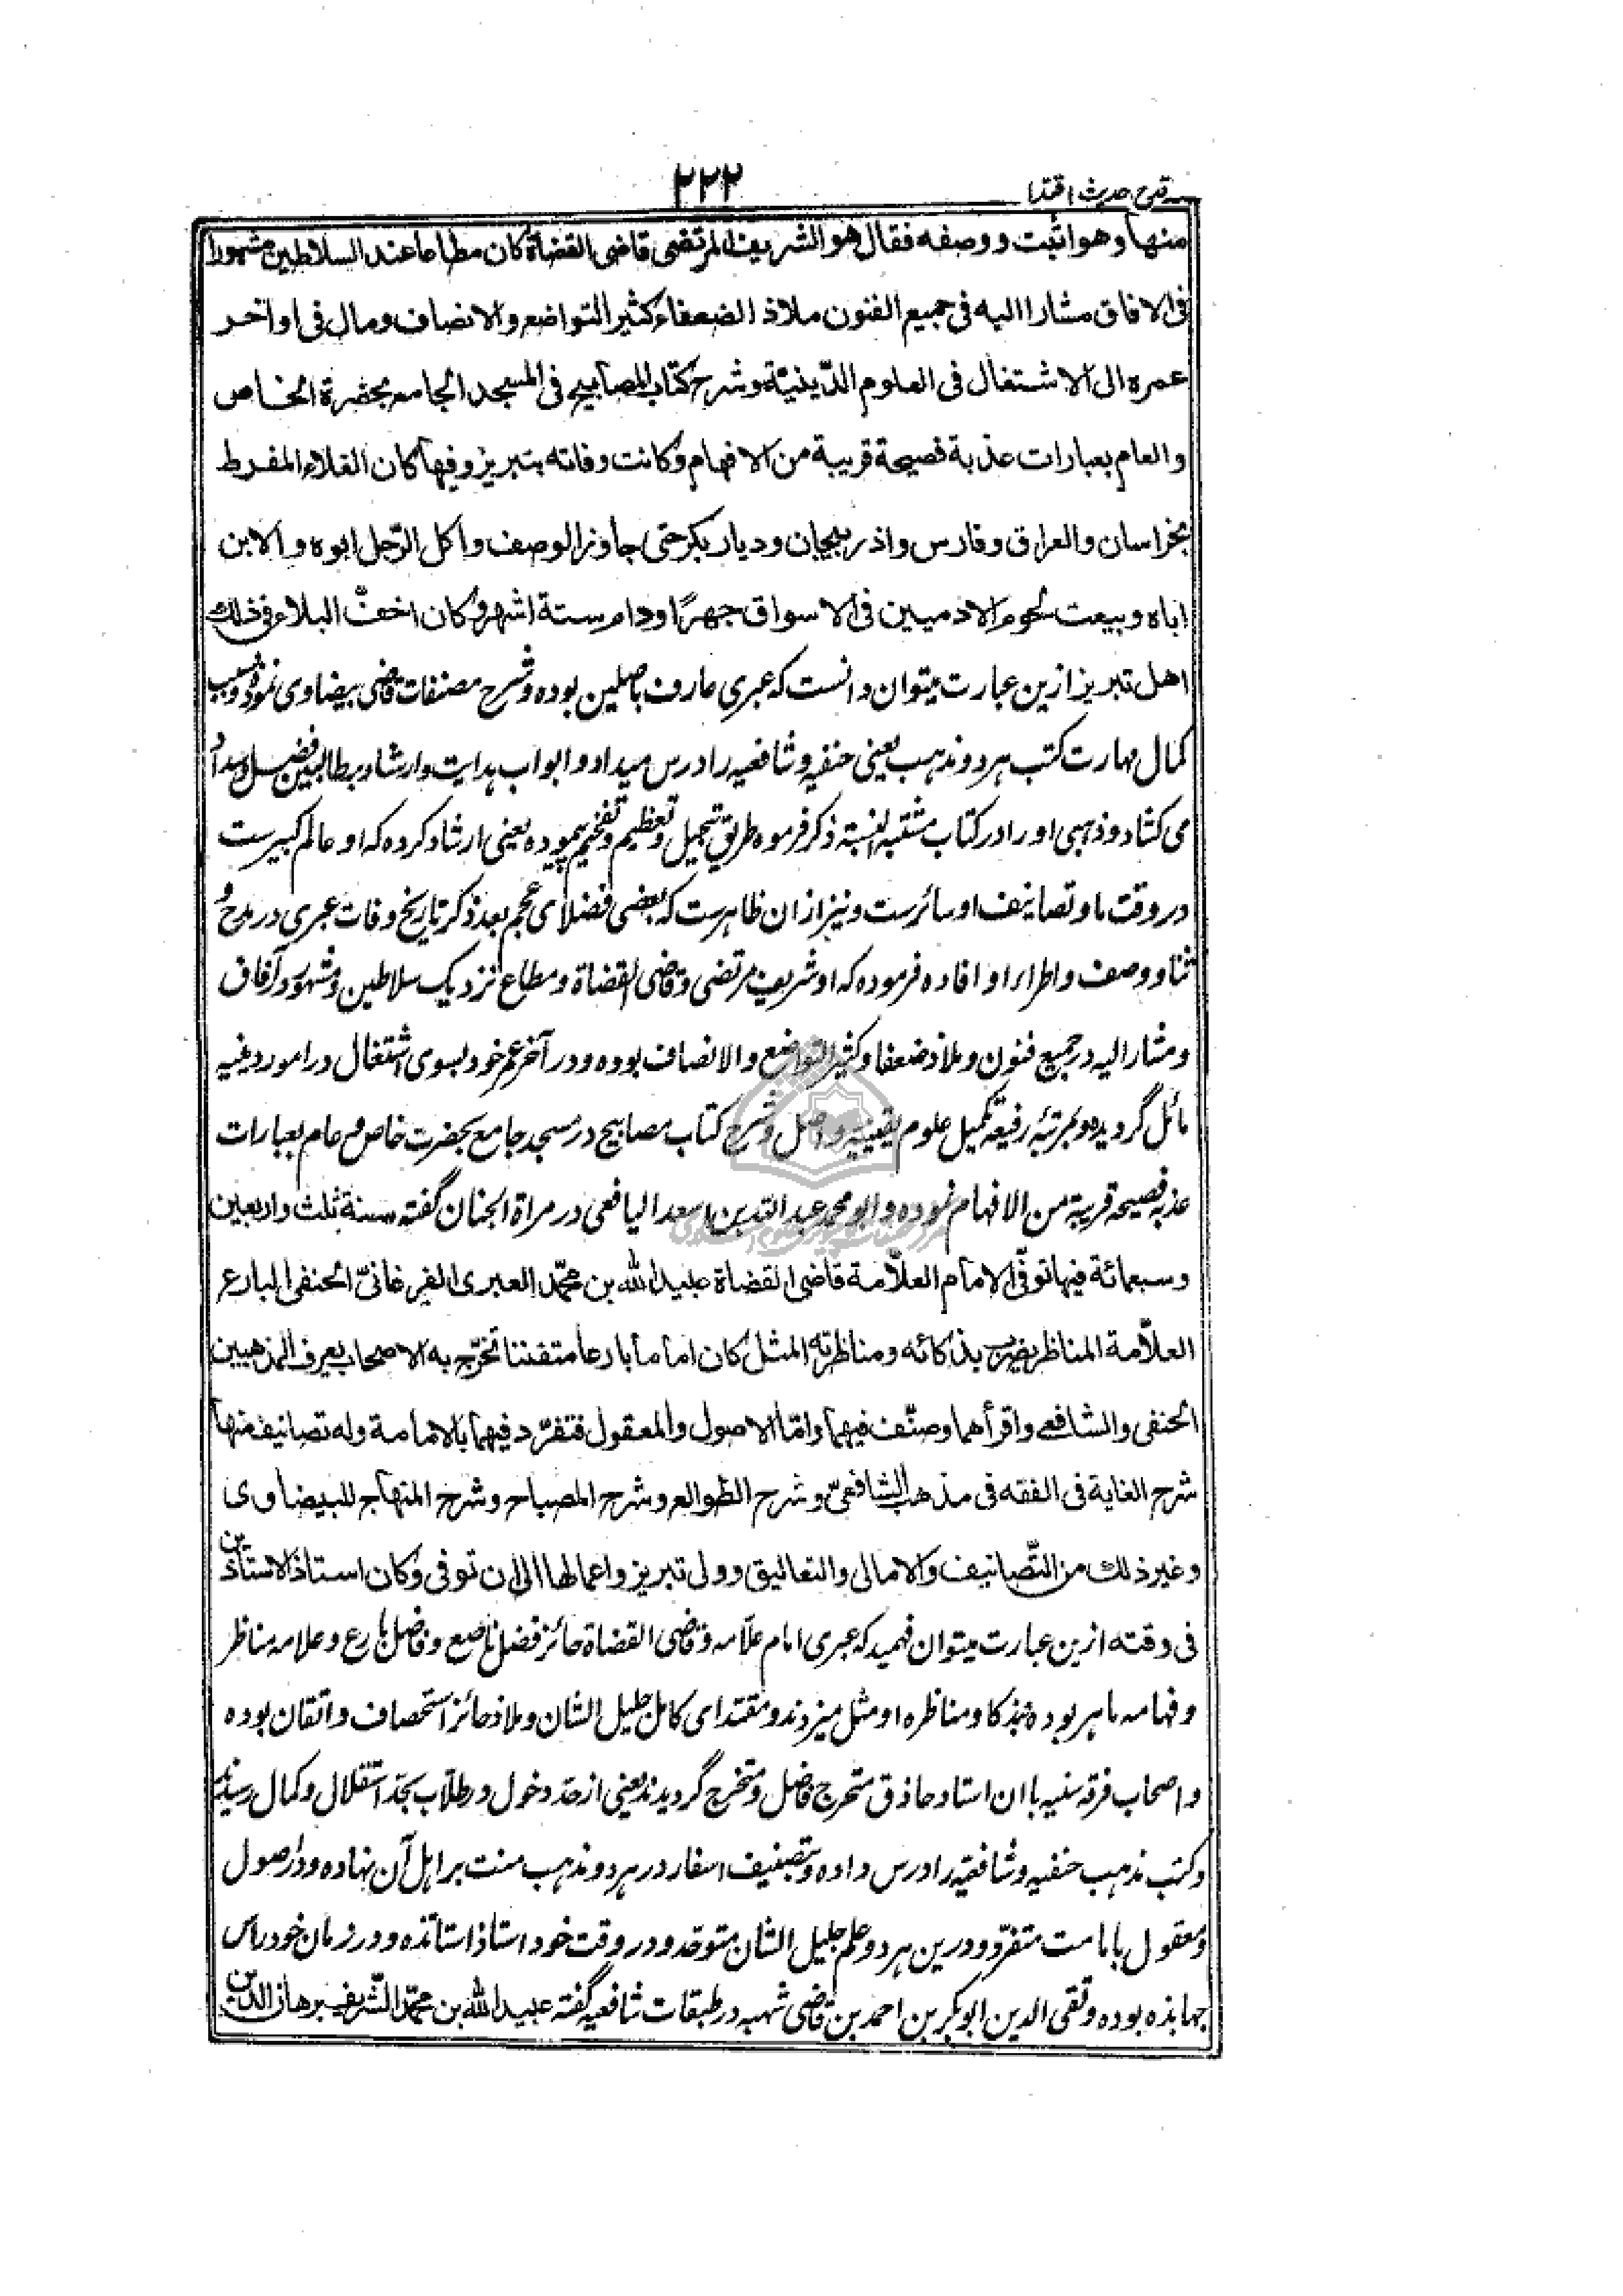 قدح حدیث اقتدا
۲۲۲
منها وهو اثبت ووصفه فقال هو الشریف المرتضی قاضی القضاة کان مطاعا عند السلاطین مشهورا
فی الافاق مشارا الیه فی جمیع الفنون ملاذ الضعفاء کثیر التواضع والانصاف ومال فی اواخر
عمره الی الاشتغال فی العلوم الدّینیّة وشرح کتاب المصابیح فی المسجد الجامع بحضرة الخاص
والعام بعبارات عذبة فصیحة قریبة من الافهام وکانت وفاته بتبریز وفیها کان الغلاء المفرط
بخراسان والعراق وفارس واذربیجان ودیار بکر حتی جاوز الوصف واکل الرّجل ابوه والابن
اباه وبیعت لحوم الادمیین فی الاسواق جهرًا ودام ستة اشهر وکان اخفّ البلاء فی ذلک
اهل تبریز ازین عبارت میتوان دانست که عبری عارف باصلین بوده وشرح مصنفات قاضی بیضاوی نموده وبسبب
کمال مهارت کتب هر دو مذهب یعنی حنفیه وشافعیه را درس میداد وابواب هدایت وارشاد بر طالبین فضل وسداد
می کشاد وذهبی او را در کتاب مشتبه النسبة ذکر فرموده طریق تبجیل وتعظیم وتفخیم پیموده یعنی ارشاد کرده که او عالم کبیر ست
در وقت ما وتصانیف او سائرست ونیز ازان ظاهرست که بعضی فضلای عجم بعد ذکر تاریخ وفات عبری در مدح و
ثنا ووصف واطراء او افاده فرموده که او شریف مرتضی وقاضی القضاة ومطاع نزدیک سلاطین ومشهور در آفاق
ومشار الیه در جمیع فنون وملاذ ضعفا وکثیر التواضع والانصاف بوده ودر آخر عمر خود بسوی اشتغال در امور دینیه
مائل گردیده وبمرتبۀ رفیعۀ تکمیل علوم یقینیه واصل وشرح کتاب مصابیح در مسجد جامع بحضرت خاص وعام بعبارات
عذبه فصیحه قریبة من الافهام نموده وابو محمد عبد الله بن اسعد الیافعی در مراة الجنان گفته سنة ثلث واربعین
وسبعمائة فیها توفّی الامام العلاّمة قاضی القضاة عبید الله بن محمّد العبری الفرغانیّ الحنفی البارع
العلاّمة المناظر یضرب بذکائه ومناظرته المثل کان اماما بارعا متفننا تخرّج به الاصحاب یعرف المذهبین
الحنفی والشافعی واقرأهما وصنّف فیهما وامّا الاصول والمعقول فتفرّد فیهما بالامامة وله تصانیف منها
شرح الغایة فی الفقه فی مذهب الشافعیّ وشرح الطوالع وشرح المصباح وشرح المنهاج للبیضاوی
وغیر ذلک من التّصانیف والامالی والتعالیق وولی تبریز واعمالها الی ان توفی وکان استاذ الاستاذین
فی وقته ازین عبارت میتوان فهمید که عبری امام علّامه وقاضی القضاة حائز فضل ناصع وفاضل بارع وعلامه مناظر
وفهامه ماهر بوده بذکا ومناظره او مثل میزدند ومقتدای کامل جلیل الشان وملاذ حائز استحصاف واتقان بوده
واصحاب فرقه سنیه باان استاد حاذق متخرج فاضل ومتخرج گردیدند یعنی از حد دخول در طلّاب بحدّ استقلال وکمال رسیدند
وکتب مذهب حنفیه وشافعیه را درس داده وبتصنیف اسفار در هر دو مذهب منت بر اهل آن نهاده ودر اصول
ومعقول بامامت متفرّد ودرین هر دو علم جلیل الشان متوحد ودر وقت خود استاذ اساتذه ودر زمان خود راس
جهابذه بوده وتقی الدین ابوبکر بن احمد بن قاضی شهبه در طبقات شافعیه گفته عبید الله بن محمّد الشّریف برهان الدین